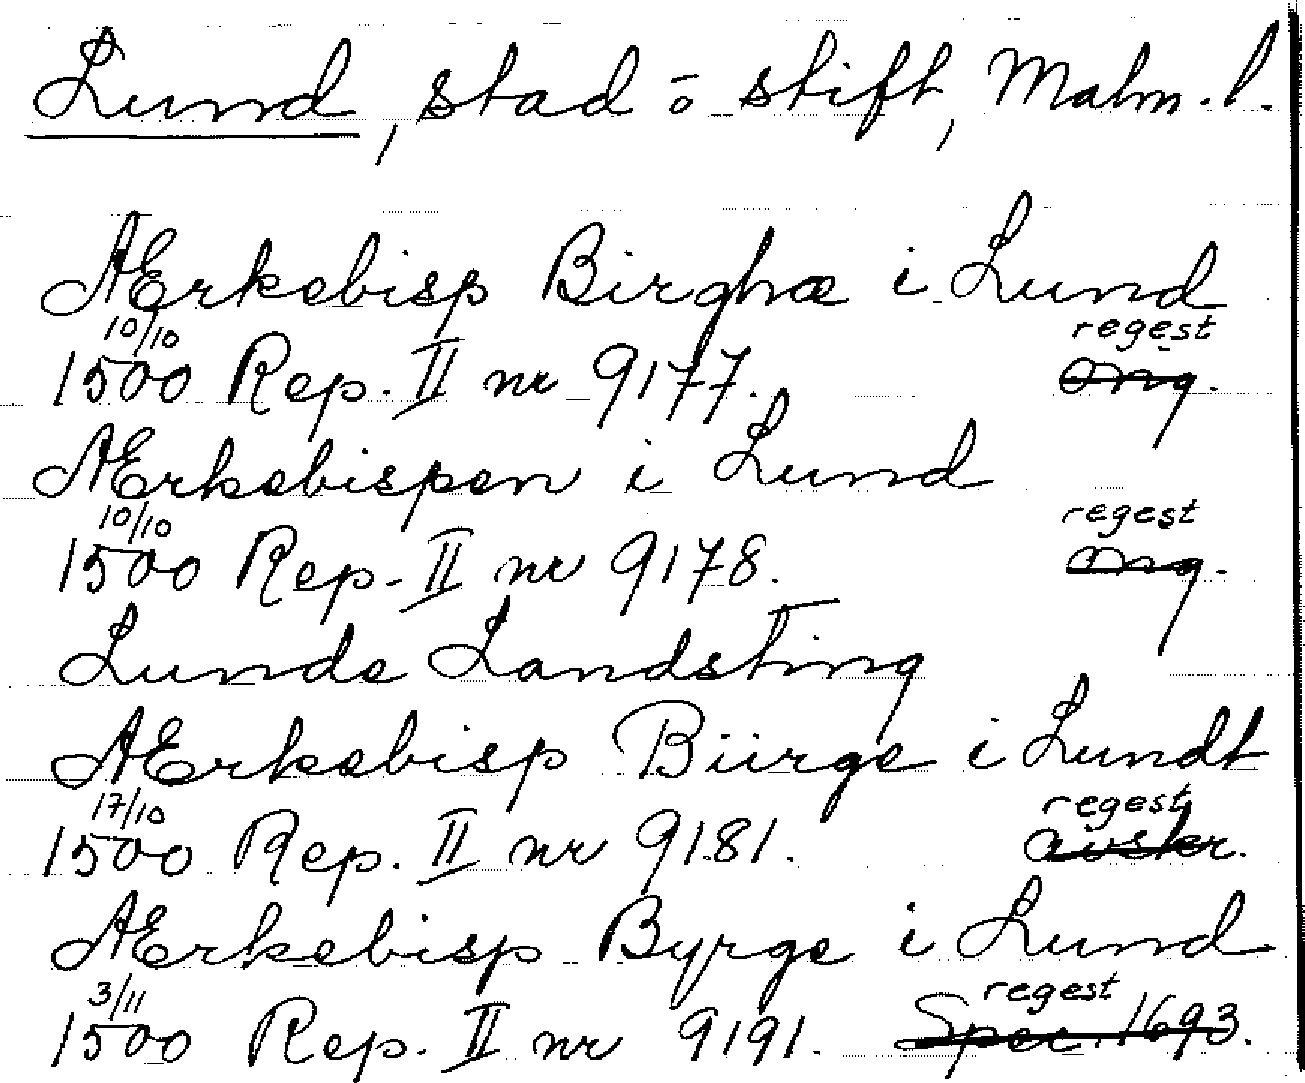 Lund, stad o stift, Malm. l.
Ærkebisp Birghæ i Lund
10/10 regest
1500 Rep. II nr 9177. orig.
Ærkebispen i Lund
10/10 regest
1500 Rep. II nr 9178. orig.
Lunde Landsting
Ærkebisp Biirge i Lundt
17/10 regest
1500 Rep. II nr 9181. avskr.
Ærkebisp Byrge i Lund
3/11 regest
1500 Rep. II nr 9191. Spec. 1693.